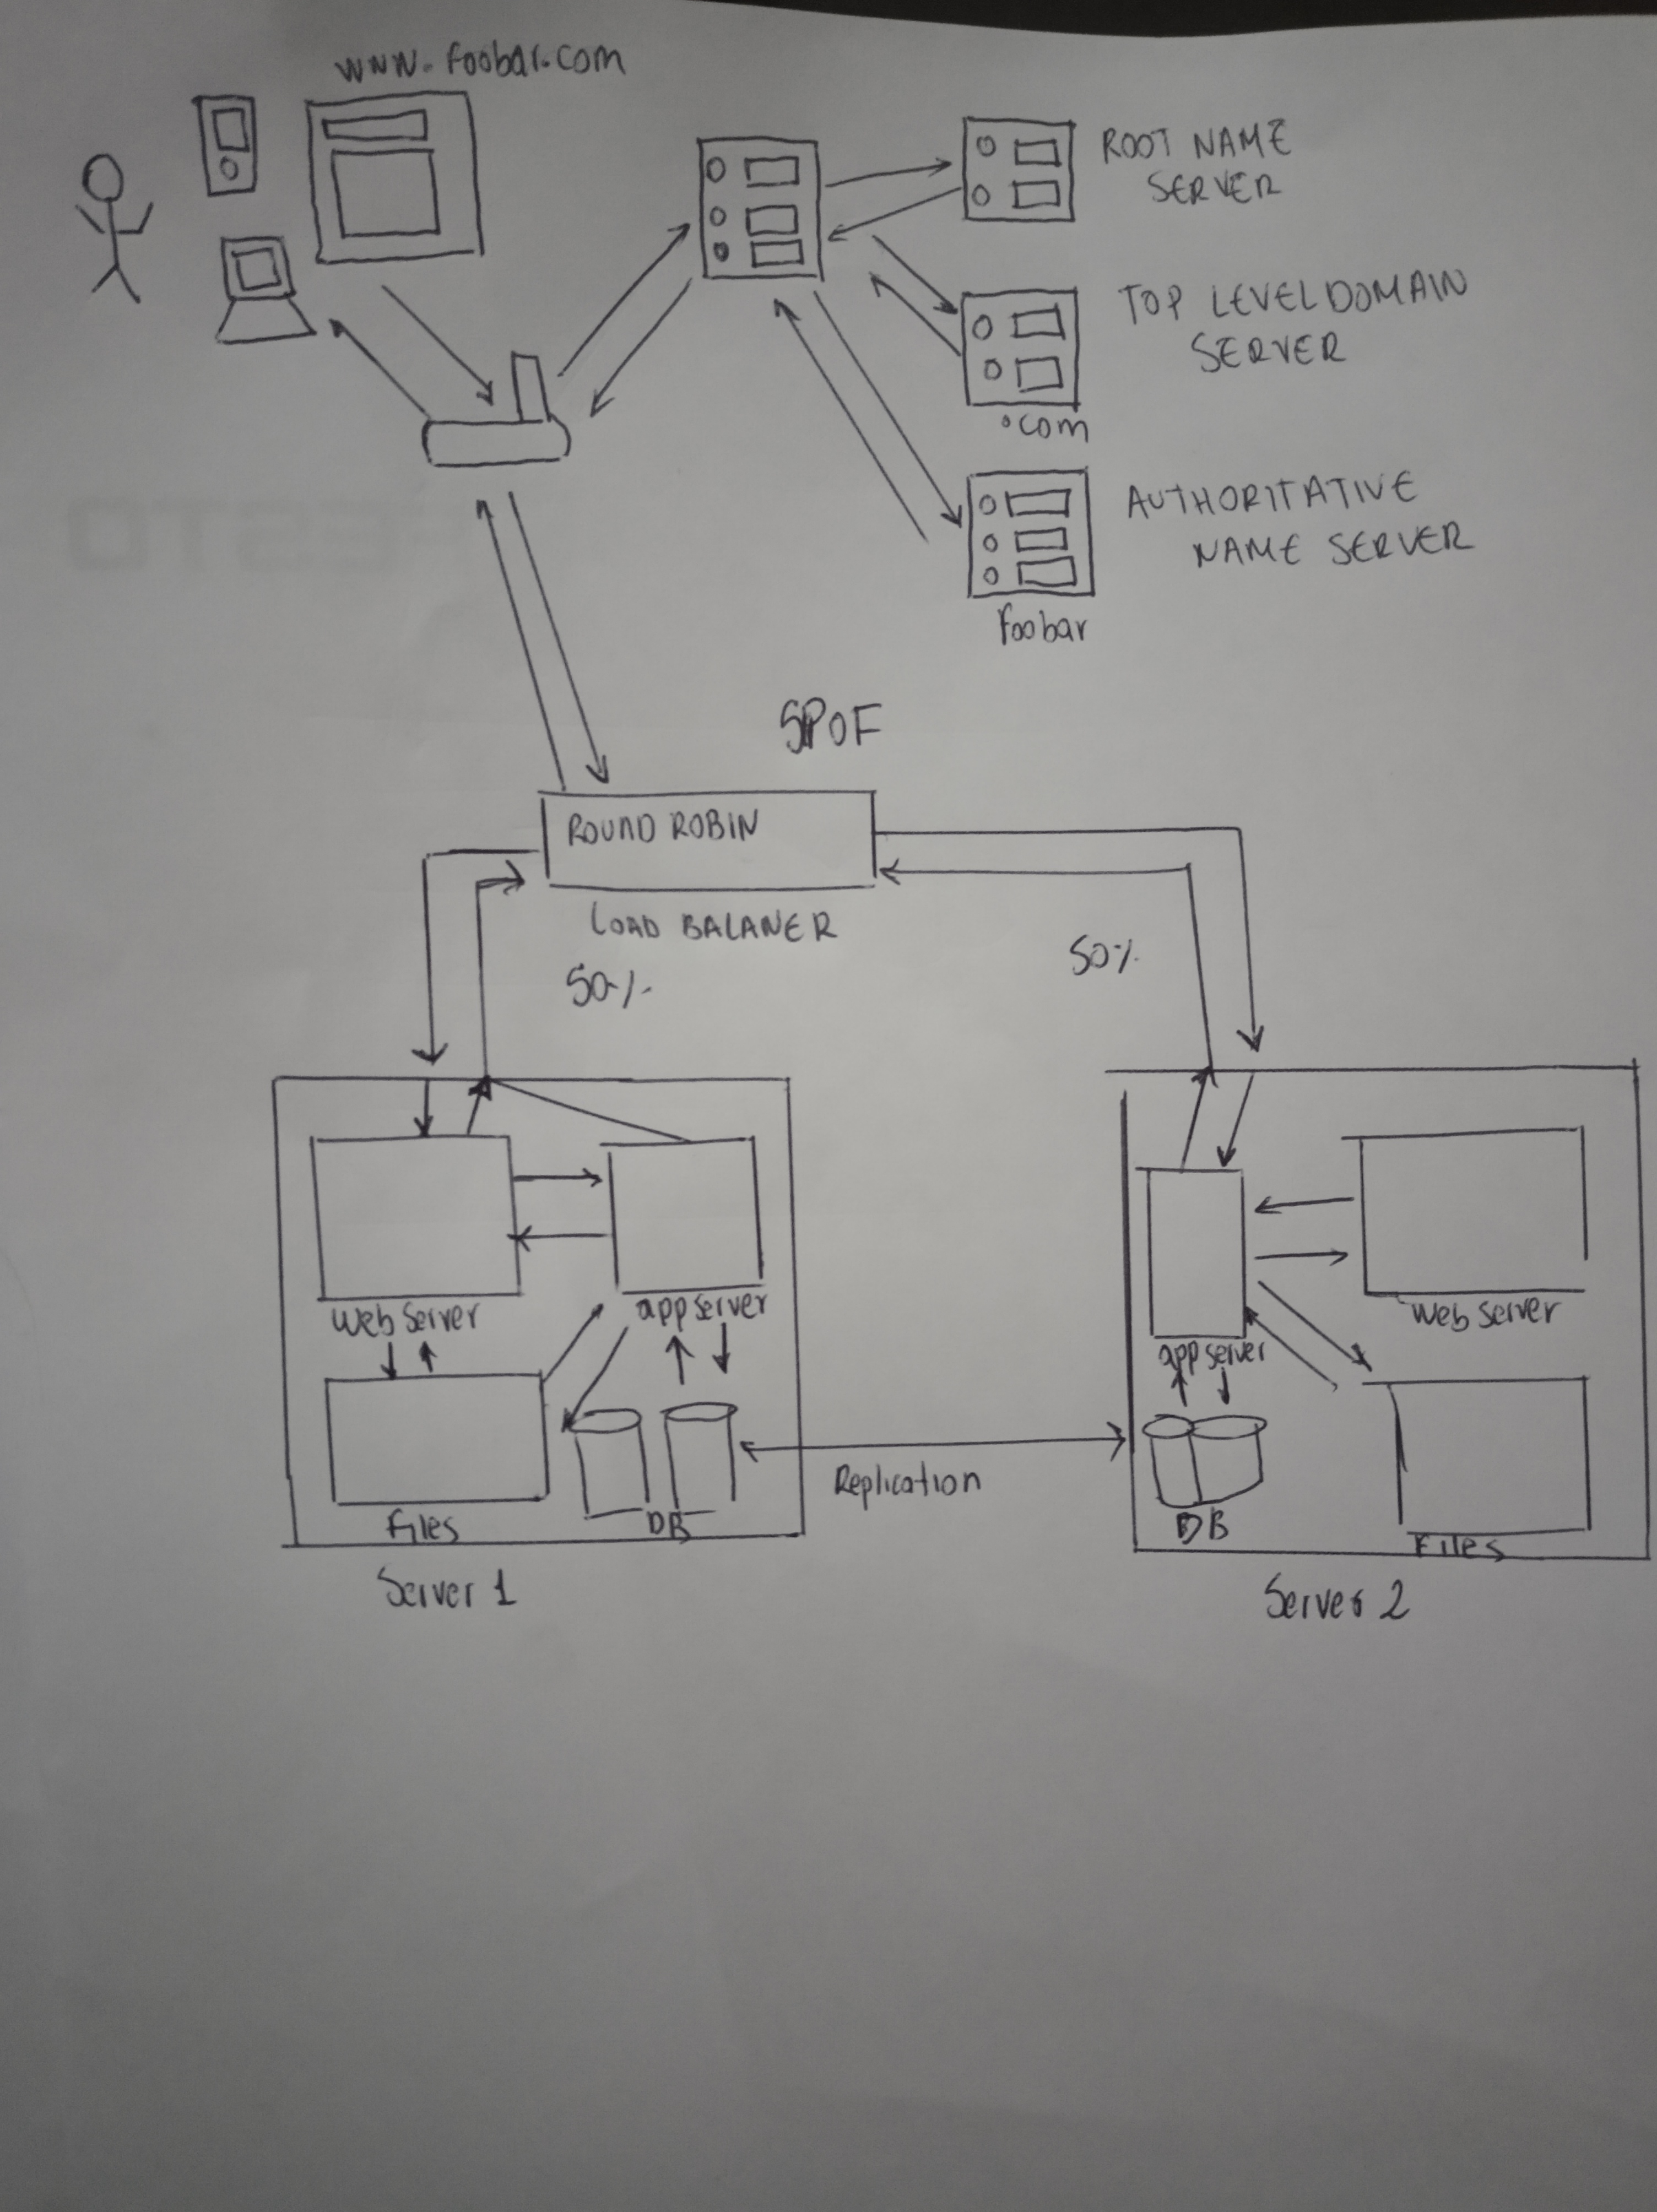 www.foobar.com
ROOT NAME
SERVER
TOP LEVEL DOMAIN
SERVER
.com
AUTHORITATIVE
NAME SERVER
foobar
SPOF
ROUND ROBIN
LOAD BALANER
50%
50%
Web Server
app server
Files
DB
Server 1
Replication
app server
Web Server
DB
Files
Server 2